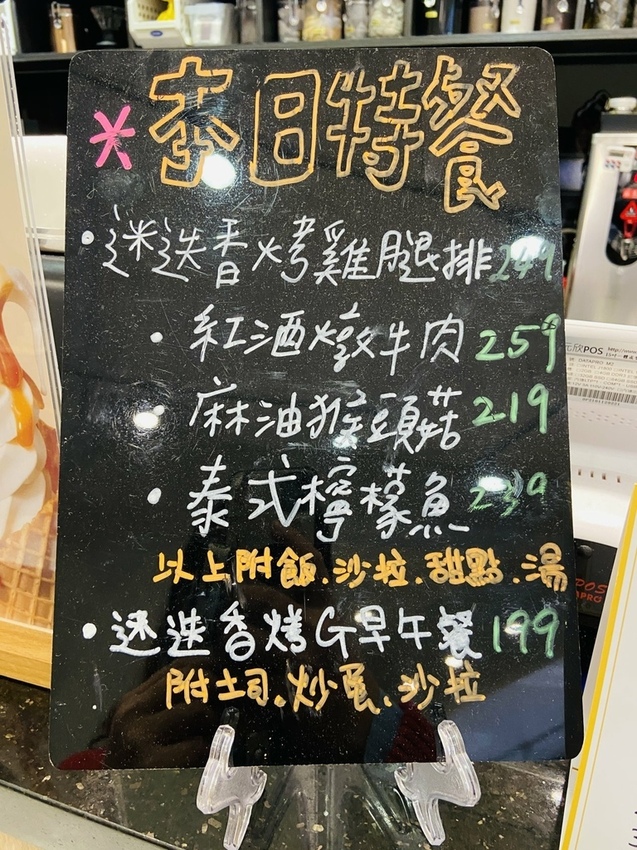 *本日特餐
·迷迭香烤雞腿排249
·紅酒燉牛肉 259
·麻油猴頭菇 219
·泰式檸檬魚 239
以上附飯、沙拉、甜點、湯
·迷迭香烤G早午餐199
附土司、炒蛋、沙拉
元欣POS